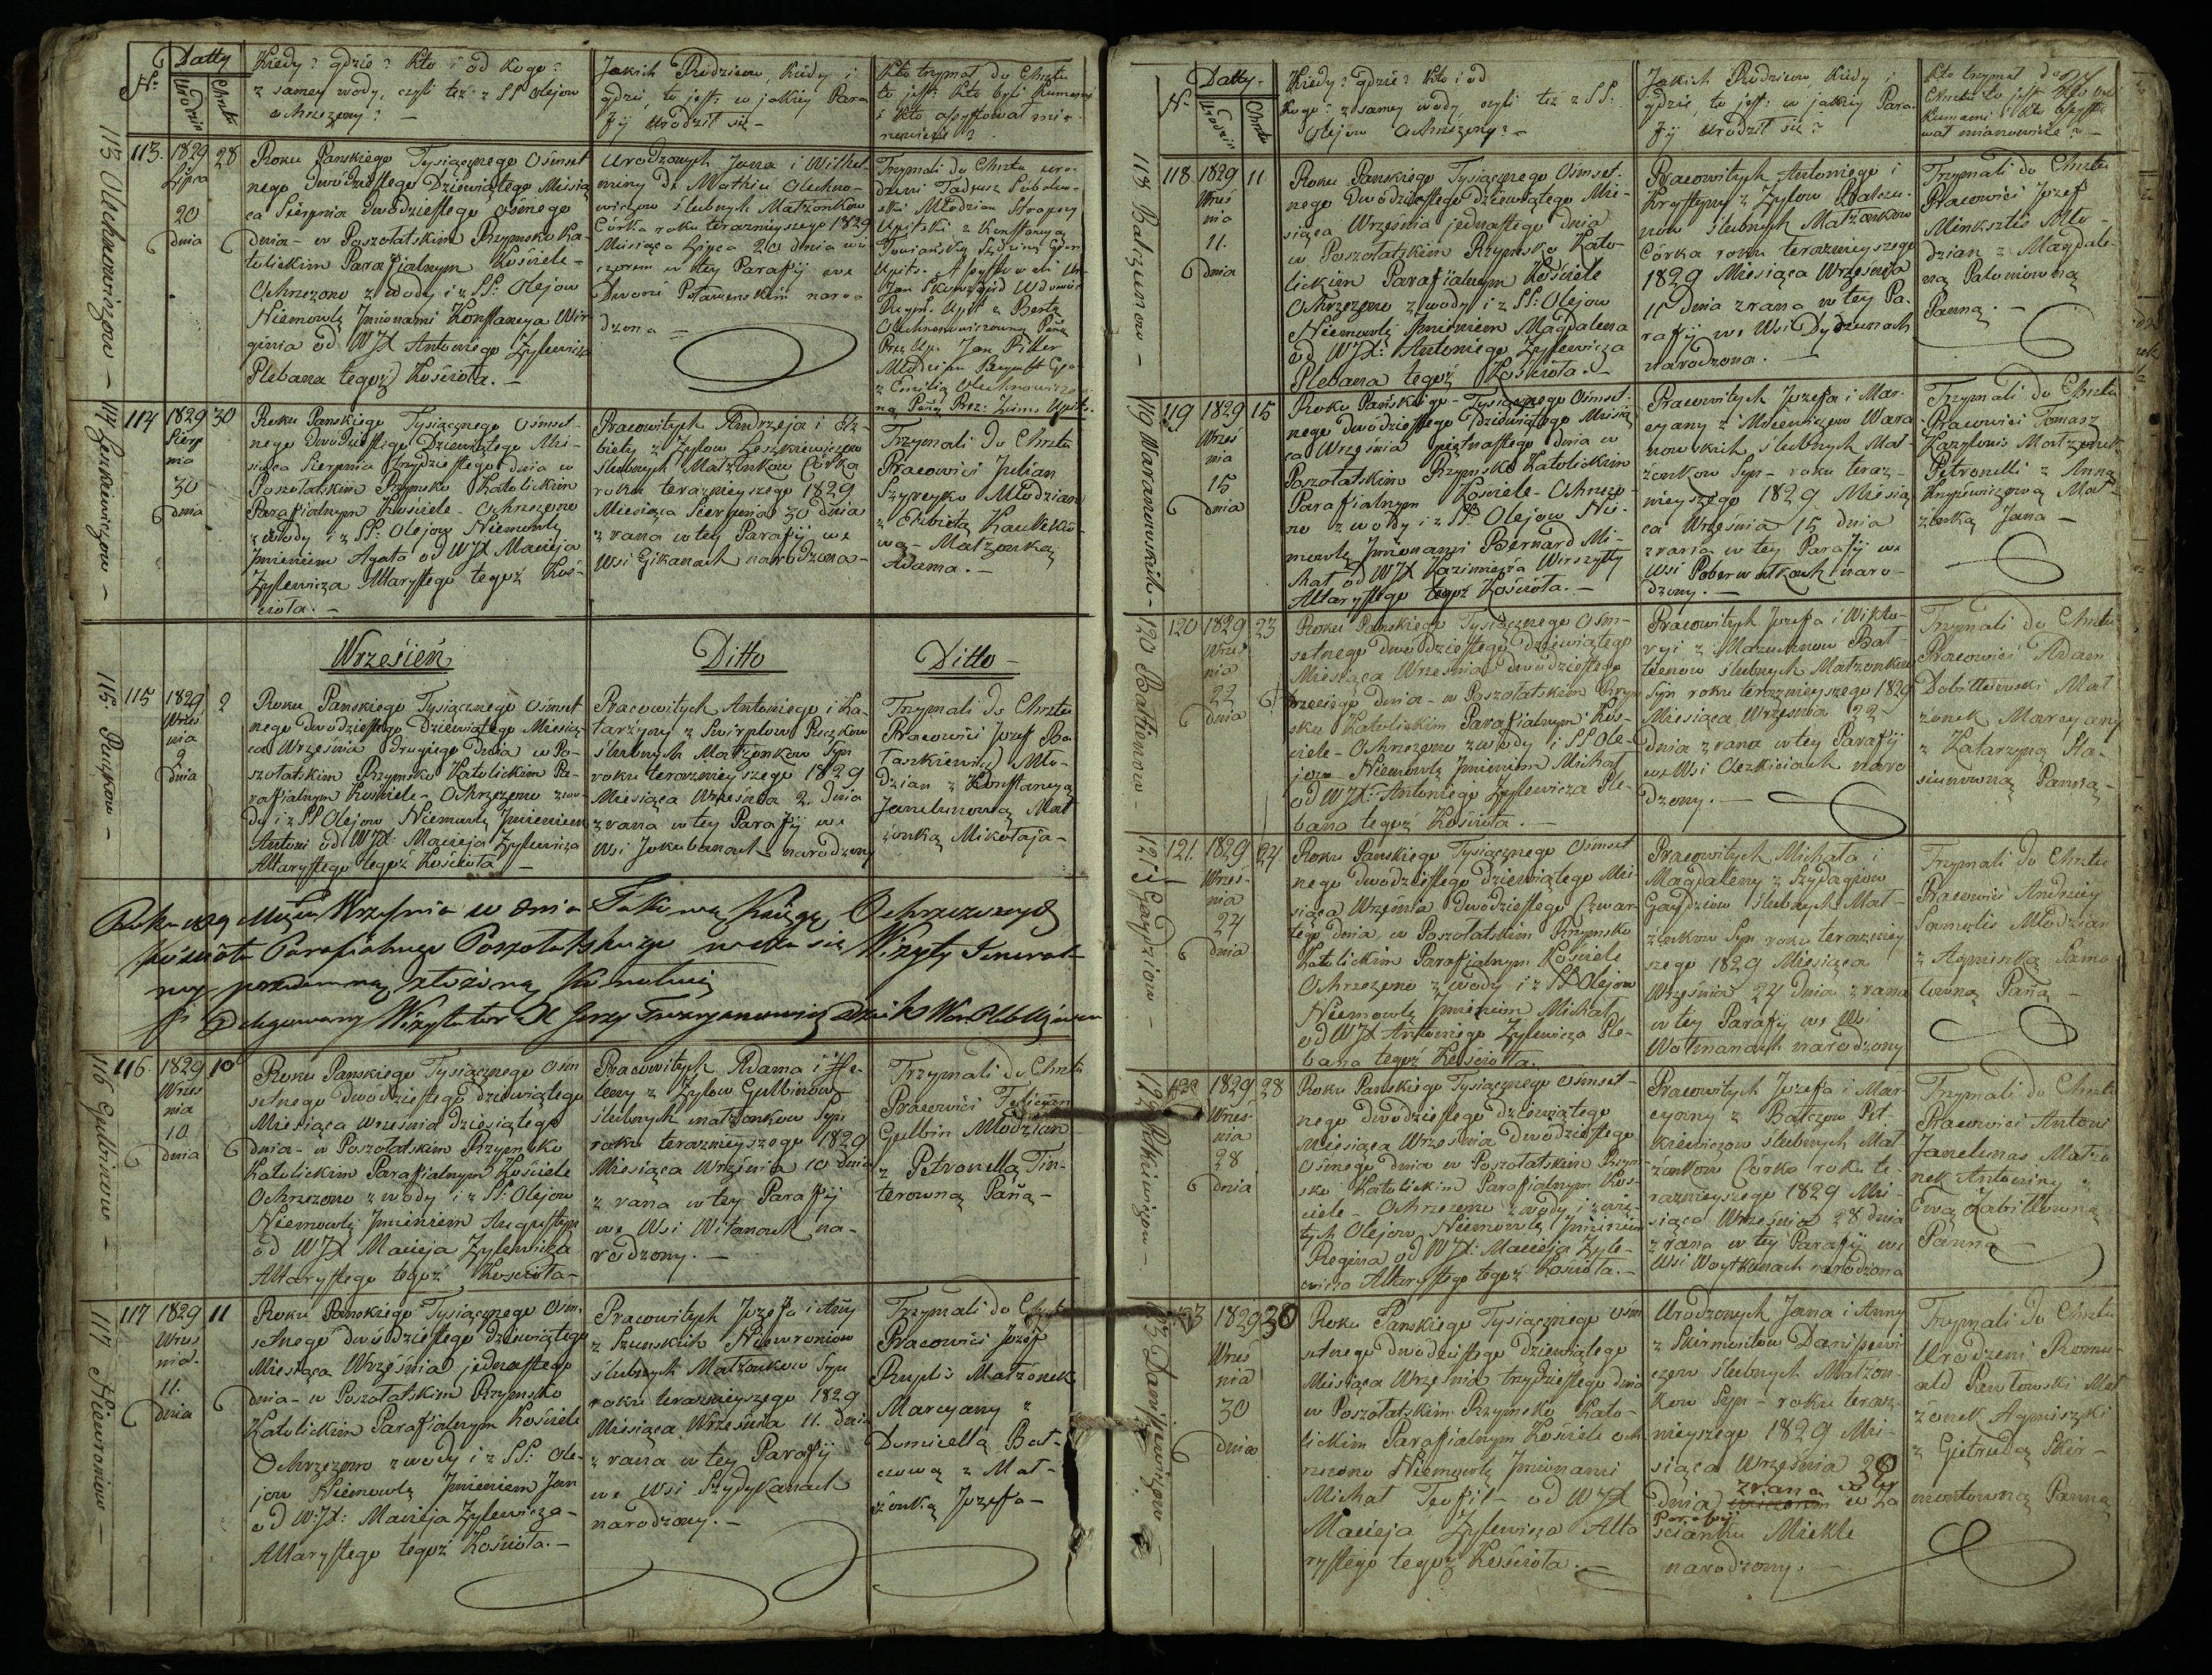 Datty
Nr
Urodzin
Chrztu
Kiedy? gdzie? Kto i od kogo?
z samey wody, czyli też z SS Olejow
ochrzczony? —
Jakich Rodzicow, kiedy i
gdzie, to jest: w jakiey Para
fij urodził się —
Kto trzymał do Chrztu
to jest: Kto byli Kumami
i kto assystował mia-
nowicie?
113 Olechnowiczow —
113. 1829 28
Lipca
20
dnia
Roku Panskiego Tysiącznego Ośmset
nego dwódziestego Dziewiątego Miesią
ca Sierpnia dwódziestego ósmego
dnia — w Poszołatskim Rzymsko Ka-
tolickim Parafialnym Kościele —
Ochrzczono z wody i z SS: Olejow
Niemowlę Jmionami Konstancya Wir
ginia od WJX Antoniego Zylewicza
Plebana tegoż Kościoła. —
Urodzonych Jana i Wilhel-
miny De Mathia Olechno-
wiczow ślubnych Małżonkow
Córka roku terazmieyszego 1829
Miesiąca Lipca 20 dnia wie
czorem w tey Parafij we
Dworze naro-
dzona —
Trzymali do Chrztu uro-
dzeni Tadeusz
Młodzian
z Konstancyą
Assystowali
Jan
Jan Piller
z Emilią Olechnowiczow
ną Pańą
114 Leszkiewiczow —
114 1829 30
Sierp
nia
30
dnia
Roku Panskiego Tysiącznego Ośmset-
nego dwódziestego Dziewiątego Mie-
siąca Sierpnia trzydziestego dnia w
Poszołatskim Rzymsko Katolickim
Parafialnym Kościele — Ochrzczono
z wody i z SS: Olejow Niemowlę
Jmieniem Agata od WJX Macieja
Zylewicza Altarystego tegoż Koś-
cioła. —
Pracowitych Andrzeja i Elż-
biety z Zylow Leszkiewiczow
ślubnych Małżonkow Córka
roku terazmieyszego 1829
Miesiąca Sierpnia 30 dnia
z rana w tey Parafij we
Wsi Gikanach narodzona —
Trzymali do Chrztu
Pracowici Julian
Szyreyko Młodzian
z Elżbietą
wą — Małżonką
Adama. —
Wrzesień
Ditto
Ditto —
115 Puczkow —
115 1829 2
Wrześ
nia
2
dnia
Roku Panskiego Tysiącznego Ośmset
nego dwódziestego Dziewiątego Miesią-
ca Września drugiego Dnia w Po-
szołatskim Rzymsko Katolickim Pa-
rafialnym Kościele — Ochrzczono z wo-
dy i z SS Olejow Niemowlę Jmieniem
Antoni od WJX: Macieja Zylewicza
Altarystego tegoż Kościoła —
Pracowitych Antoniego i Ka-
tarzyny z Swirplow Puczkow
ślubnych Małżonkow Syn
roku terazmieyszego 1829
Miesiąca Września 2. dnia
z rana w tey Parafij we
Wsi Jokubanach narodzony
Trzymali do Chrztu
Pracowici Jozef Ba-
taszkiewicz Mło-
dzian z Konstancyą
Janelunową Mał
żonką Mikołaja —
Roku 1829 Września dnia Takową Księgę Ochrzczonych
Kościoła Parafialnego Poszołatskiego Wizyty General-
ney
Delegowany Wizytator X Jerzy
116 Gulbinow —
116. 1829 10
Wrześ
nia
10
dnia
Roku Panskiego Tysiącznego Ośm
setnego dwódziestego dziewiątego
Miesiąca Września Dziesiątego
dnia — w Poszołatskim Rzymsko
Katolickim Parafialnym Kościele
Ochrzczono z wody i z SS: Olejow
Niemowlę Jmieniem Augustyn
od WJX Macieja Zylewicza
Altarystego tegoż Kościoła —
Pracowitych Adama i He-
leny z Zylow Gulbinow
ślubnych małżonkow Syn
roku terazmieyszego 1829
Miesiąca Września 10 dnia
z rana w tey Parafij
we Wsi Witanach na-
rodzony. —
Trzymali do Chrztu
Pracowici Felicyan
Gulbin Młodzian
z Petronellą Tin-
terowną Pańą —
117 Niewroniow —
117 1829 11
Wrześ
nia.
11.
dnia
Roku Panskiego Tysiącznego Ośm-
setnego dwódziestego dziewiątego
Miesiąca Września jednastego
dnia — w Poszołatskim Rzymsko
Katolickim Parafialnym Kościele
Ochrzczono z wody i z SS: Ole-
jow Niemowlę Jmieniem Jan
od WJX: Macieja Zylewicza —
Altarystego tegoż Kościoła. —
Pracowitych Jozefa i Anny
z Szunskich Niewroniow
ślubnych Małżonkow Syn
roku terazmieyszego 1829
Miesiąca Września 11. dnia
z rana w tey Parafij
we Wsi Szydykanach
narodzony. —
Trzymali do Chrztu
Pracowici Jozef
Ruplis Małżonek
Marcyany z
Domicellą Bal-
czową z Mał-
żonką Jozefa —
Datty.
Nr
Urodzin
Chrztu
Kiedy? gdzie? Kto i od
Kogo? z samey wody czyli też z SS:
Olejow Ochrzczony? —
Jakich Rodzicow, kiedy i
gdzie, to jest: w jakiey Para-
fij urodził się?
Kto trzymał do
Chrztu to jest Kto byli
Kumami i kto assysto
wał mianowicie? —
118 Balczunow —
118 1829 11
Wrześ
nia
11.
dnia
Roku Panskiego Tysiącznego Ośmset-
nego dwódziestego dziewiątego Mie-
siąca Września jednastego dnia
w Poszołatskim Rzymsko Kato-
lickim Parafijalnym Kościele
Ochrzczono z wody i z SS: Olejow
Niemowlę Jmieniem Magdalena
od WJX: Antoniego Zylewicza
Plebana tegoż Kościoła. —
Pracowitych Antoniego i
Krystyny z Zylow Balczu-
now ślubnych Małżonkow
Córka roku terazmieyszego
1829 Miesiąca Września
11 dnia z rana w tey Pa-
rafij we Wsi Dydzunach
narodzona. —
Trzymali do Chrztu
Pracowici Jozef
Minksztis Mło-
dzian z Magdale-
ną Paloniowną
Panną. —
119 Waranowskich —
119 1829 15
Wrześ
nia
15
dnia
Roku Panskiego — Tysiącznego Ośmset-
nego dwódziestego dziewiątego Miesią
ca Września piętnastego dnia w
Poszołatskim Rzymsko Katolickim
Parafialnym Kościele — Ochrzczo-
no z wody i z SS: Olejow Nie-
mowlę Jmionami Bernard Mi-
chał od WJX Kazimierza Wirszyłły
Altarystego tegoż Kościoła. —
Pracowitych Jozefa i Mar-
cyany z Mickiewiczow Wara
nowskich ślubnych Mał-
żonkow Syn — roku teraz-
mieyszego 1829 Miesią
ca Września 15 dnia
z rana w tey Parafij we
Wsi Poberwutkach naro-
dzony. —
Trzymali do Chrztu
Pracowici Tomasz
Małżonek
Petronelli z Anną
Mał-
żonką Jana —
120 Baltienow —
120 1829 23
Wrześ
nia
22
dnia
Roku Panskiego Tysiącznego Ośm-
setnego dwódziestego dziewiątego
Miesiąca Września dwódziestego
trzeciego dnia — w Poszołatskim Rzym
sko Katolickim Parafialnym Koś-
ciele — Ochrzczono z wody i SS Ole-
jow Niemowlę Jmieniem Michał
od WJX: Antoniego Zylewicza Ple-
bana tegoż Kościoła. —
Pracowitych Jozefa i Wikto-
ryi z Mazuchnow Bal
tienow ślubnych Małżonkow
Syn roku terazmieyszego 1829
Miesiąca Września 22
dnia z rana w tey Parafij
we Wsi naro
dzony. —
Trzymali do Chrztu
Pracowici Adam
Mał
żonek Marcyany
z Katarzyną Sta-
siunowną Panną —
121 Gaydziow —
121. 1829 24
Wrześ-
nia
24
dnia
Roku Panskiego Tysiącznego Ośmset
nego dwódziestego dziewiątego Mie
siąca Września dwódziestego czwar-
tego dnia w Poszołatskim Rzymsko
Katolickim Parafialnym Kościele
Ochrzczono z wody i z SS Olejow
Niemowlę Jmieniem Michał
od WJX Antoniego Zylewicza Ple-
bana tegoż Kościoła.
Pracowitych Michała i
Magdaleny z Szydagiow
Gaydziow ślubnych Mał-
żonkow Syn roku terazmiey
szego 1829 Miesiąca
Września 24 dnia z rana
w tey Parafij we Wsi
Wolmanach narodzony
Trzymali do Chrztu
Pracowici Andrzey
Samulis Młodzian
z Agnieszką Samo-
lowną Pańą —
122 Petkiewiczow —
122 1829 28
Wrześ-
nia
28
dnia
Roku Panskiego Tysiącznego Ośmset-
nego dwódziestego dziewiątego
Miesiąca Września dwódziestego
Ośmego dnia w Poszołatskim Rzym
sko Katolickim Parafialnym Koś-
ciele — Ochrzczono z wody i z świę-
tych Olejow Niemowlę Jmieniem
Regina od WJX: Macieja Zyle-
wicza Altarystego tegoż Kościoła. —
Pracowitych Jozefa i Mar
cyany z Balczow Pet-
kiewiczow ślubnych Mał
żonkow Córka roku te-
razmieyszego 1829 Mie-
siąca Września 28 dnia
z rana w tey Parafij we
Wsi Woytkunach narodzona
Trzymali do Chrztu
Pracowici Antoni
Janelunas Małżo
nek Antoniny z
Ewą Zabiłłowną
Panną
123 Daniszewiczow —
123 1829 30
Wrześ
nia
30
dnia
Roku Panskiego Tysiącznego Ośm
setnego dwódziestego Dziewiątego
Miesiąca Września trzydziestego dnia
w Poszołatskim Rzymsko Kato-
lickim Parafialnym Kościele och
rzczono Niemowlę Jmionami
Michał Teofil — od WJX
Macieja Zylewicza Alta
rystego tegoż Kościoła. —
Urodzonych Jana i Anny
z Skirmontow Daniszewi
czow ślubnych Małżon-
kow Syn — roku teraz-
mieyszego 1829 Mie-
siąca Września 30
z rana
dnia wieczorem w Za
Parafij
ścianku Mickle
narodzony. —
Trzymali do Chrztu
Urodzeni Romu-
ald Pawłowski Mał
żonek Agnieszki
z Gietrudą Skir-
montowną Panną